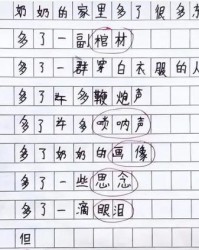 奶奶的家里多了很多东
多了一副棺材
多了一群穿白衣服的人
多了许多鞭炮声
多了许多唢呐声
多了奶奶的画像
多了一些思念
多了一滴眼泪
但